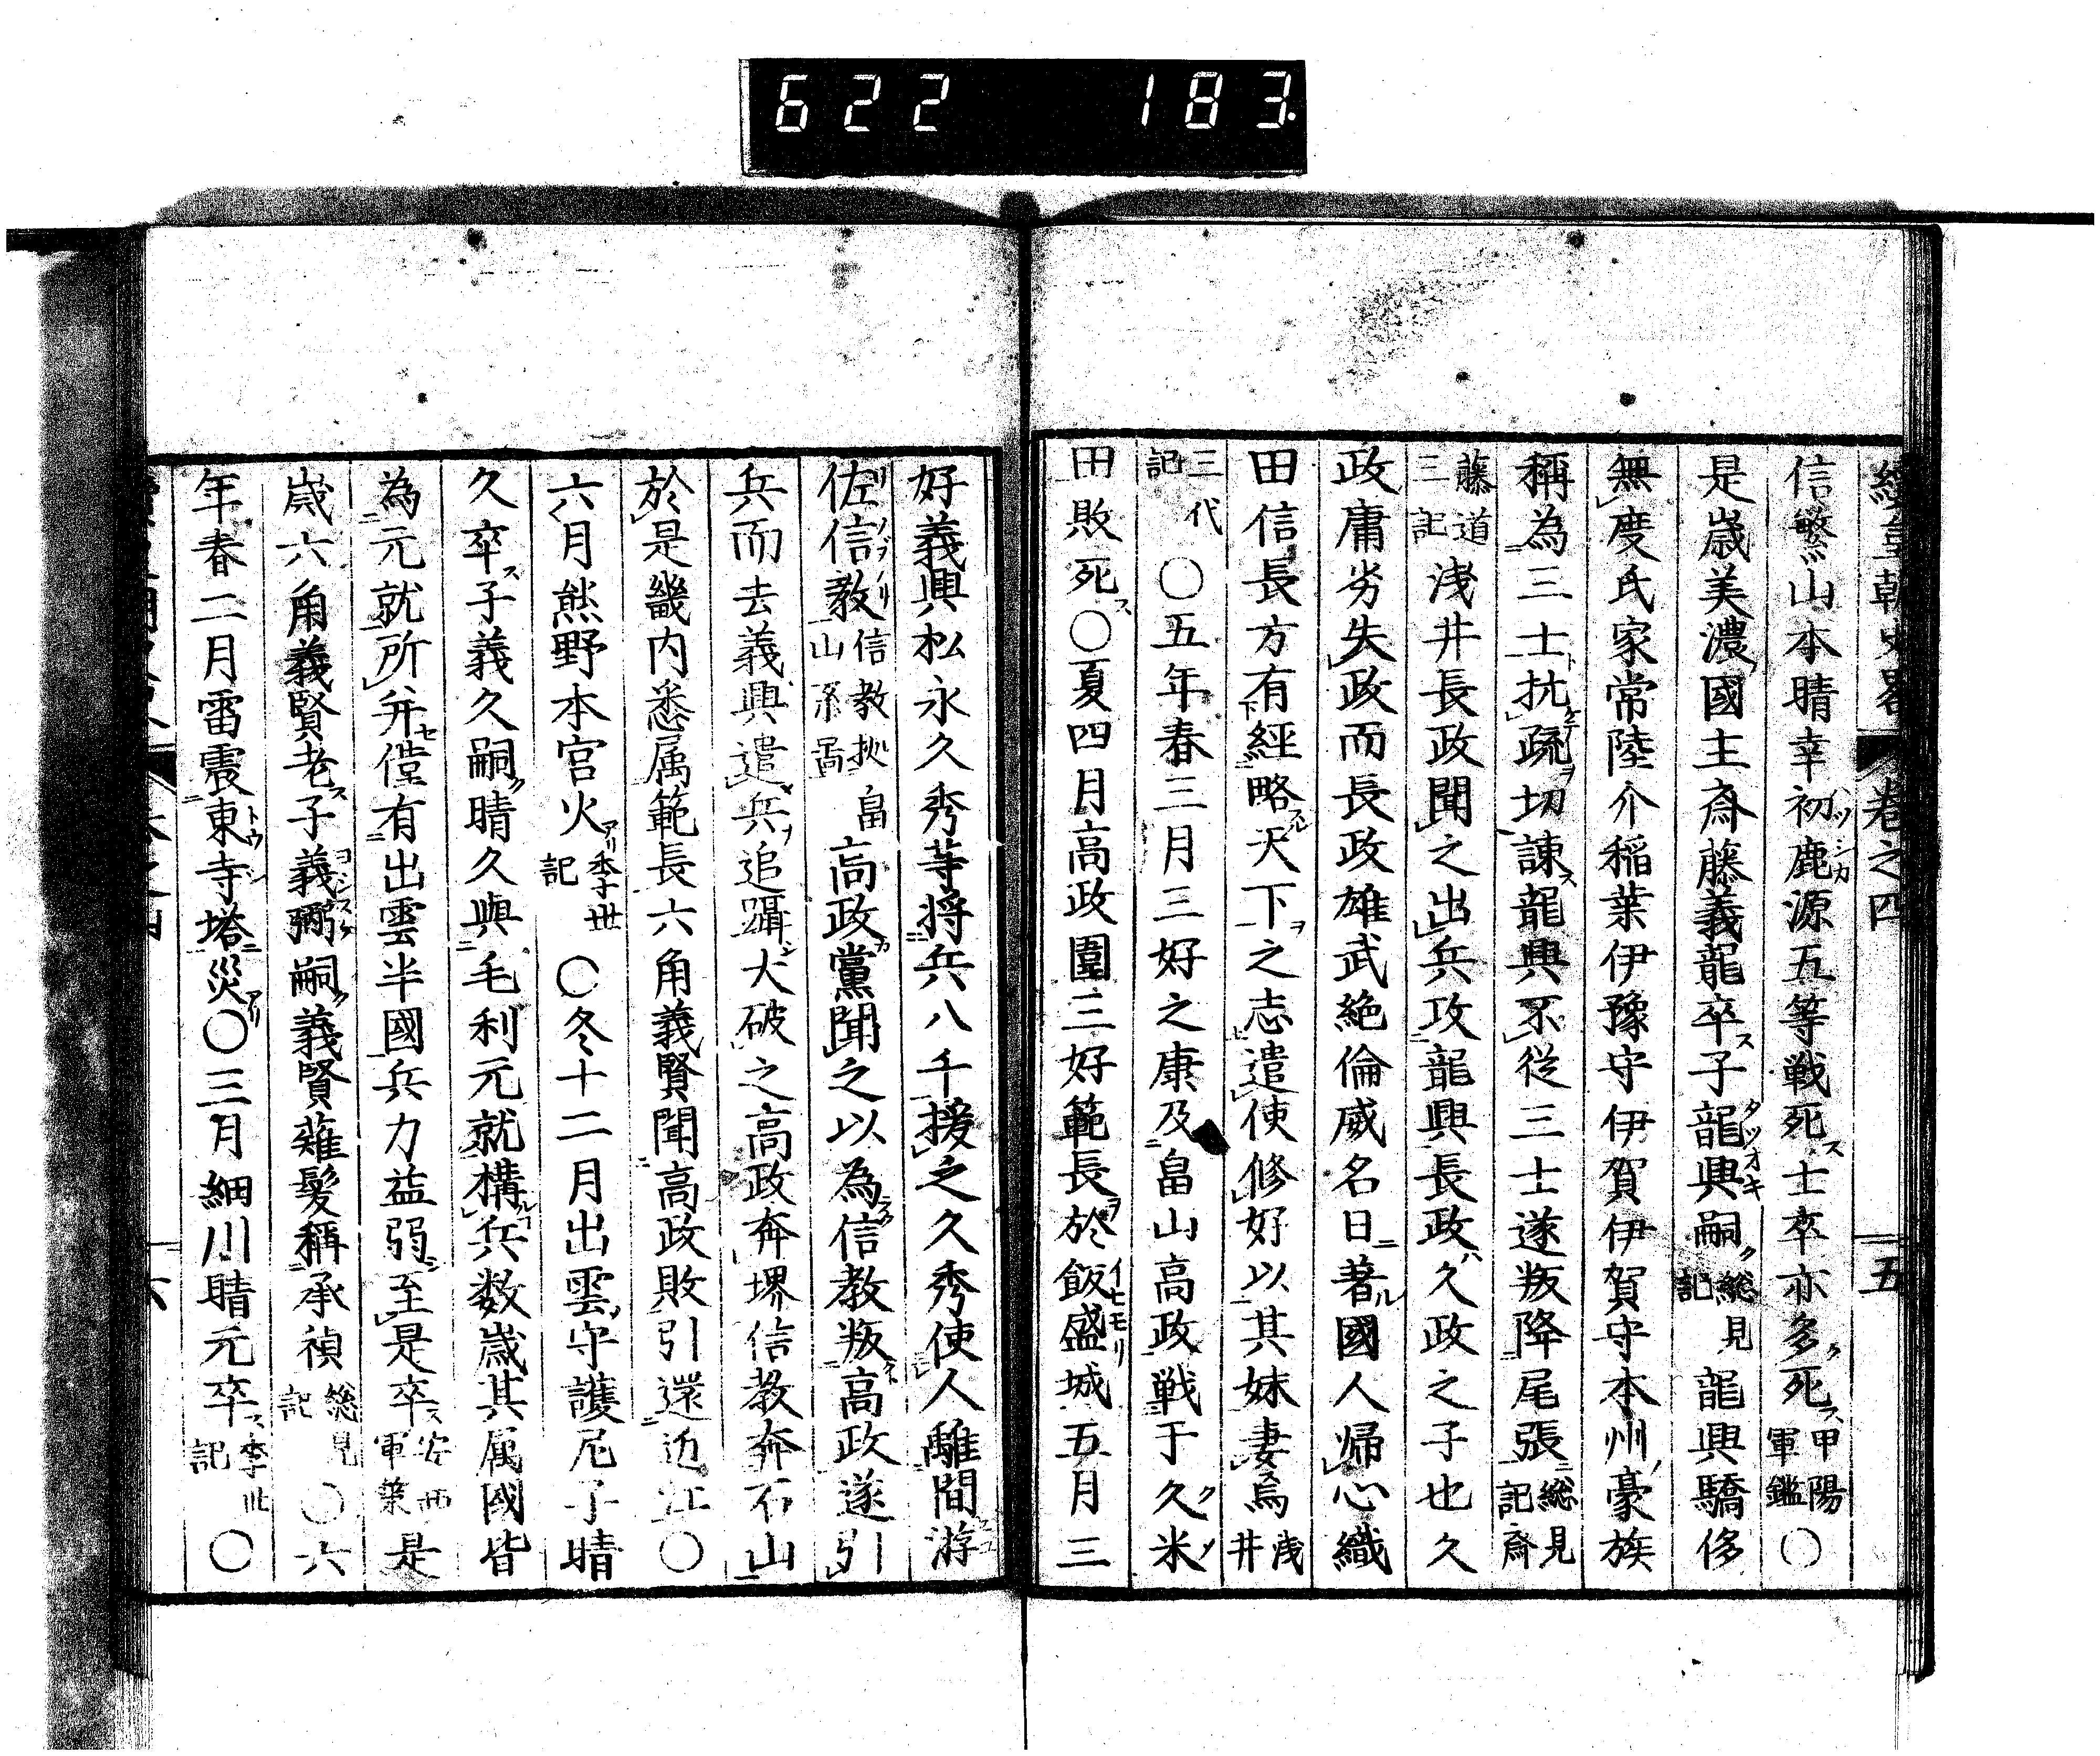 622 183.
續皇朝史畧 卷之四 五
信繁山本晴幸初鹿源五等戰死士卒亦多死甲陽軍鑑○
是歲美濃國主齋藤義龍卒子龍興嗣總見記龍興驕侈
無度氏家常陸介稲葉伊豫守伊賀伊賀守本州豪族
稱為三士抗疏切諫龍興不從三士遂叛降尾張總見記齋
藤道三記淺井長政聞之出兵攻龍興長政久政之子也久
政庸劣失政而長政雄武絶倫威名日著國人歸心織
田信長方有經略天下之志遣使修好以其妹妻焉淺井
三代記○五年春三月三好之康及畠山高政戰于久米
田敗死○夏四月高政圍三好範長於飯盛城五月三
好義興松永久秀等将兵八千援之久秀使人離間游
佐信教信教拠畠山系圖高政黨聞之以為信教叛高政遂引
兵而去義興遣兵追躡大破之高政奔堺信教奔石山
於是畿内悉属範長六角義賢聞高政敗引還近江○
六月熊野本宮火季世記○冬十二月出雲守護尼子晴
久卒子義久嗣晴久與毛利元就構兵数歲其属國皆
為元就所并僅有出雲半國兵力益弱至是卒安西軍策是
歲六角義賢老子義弼嗣義賢薙髮稱承禎總見記○六
年春二月雷震東寺塔災○三月細川晴元卒季世記○